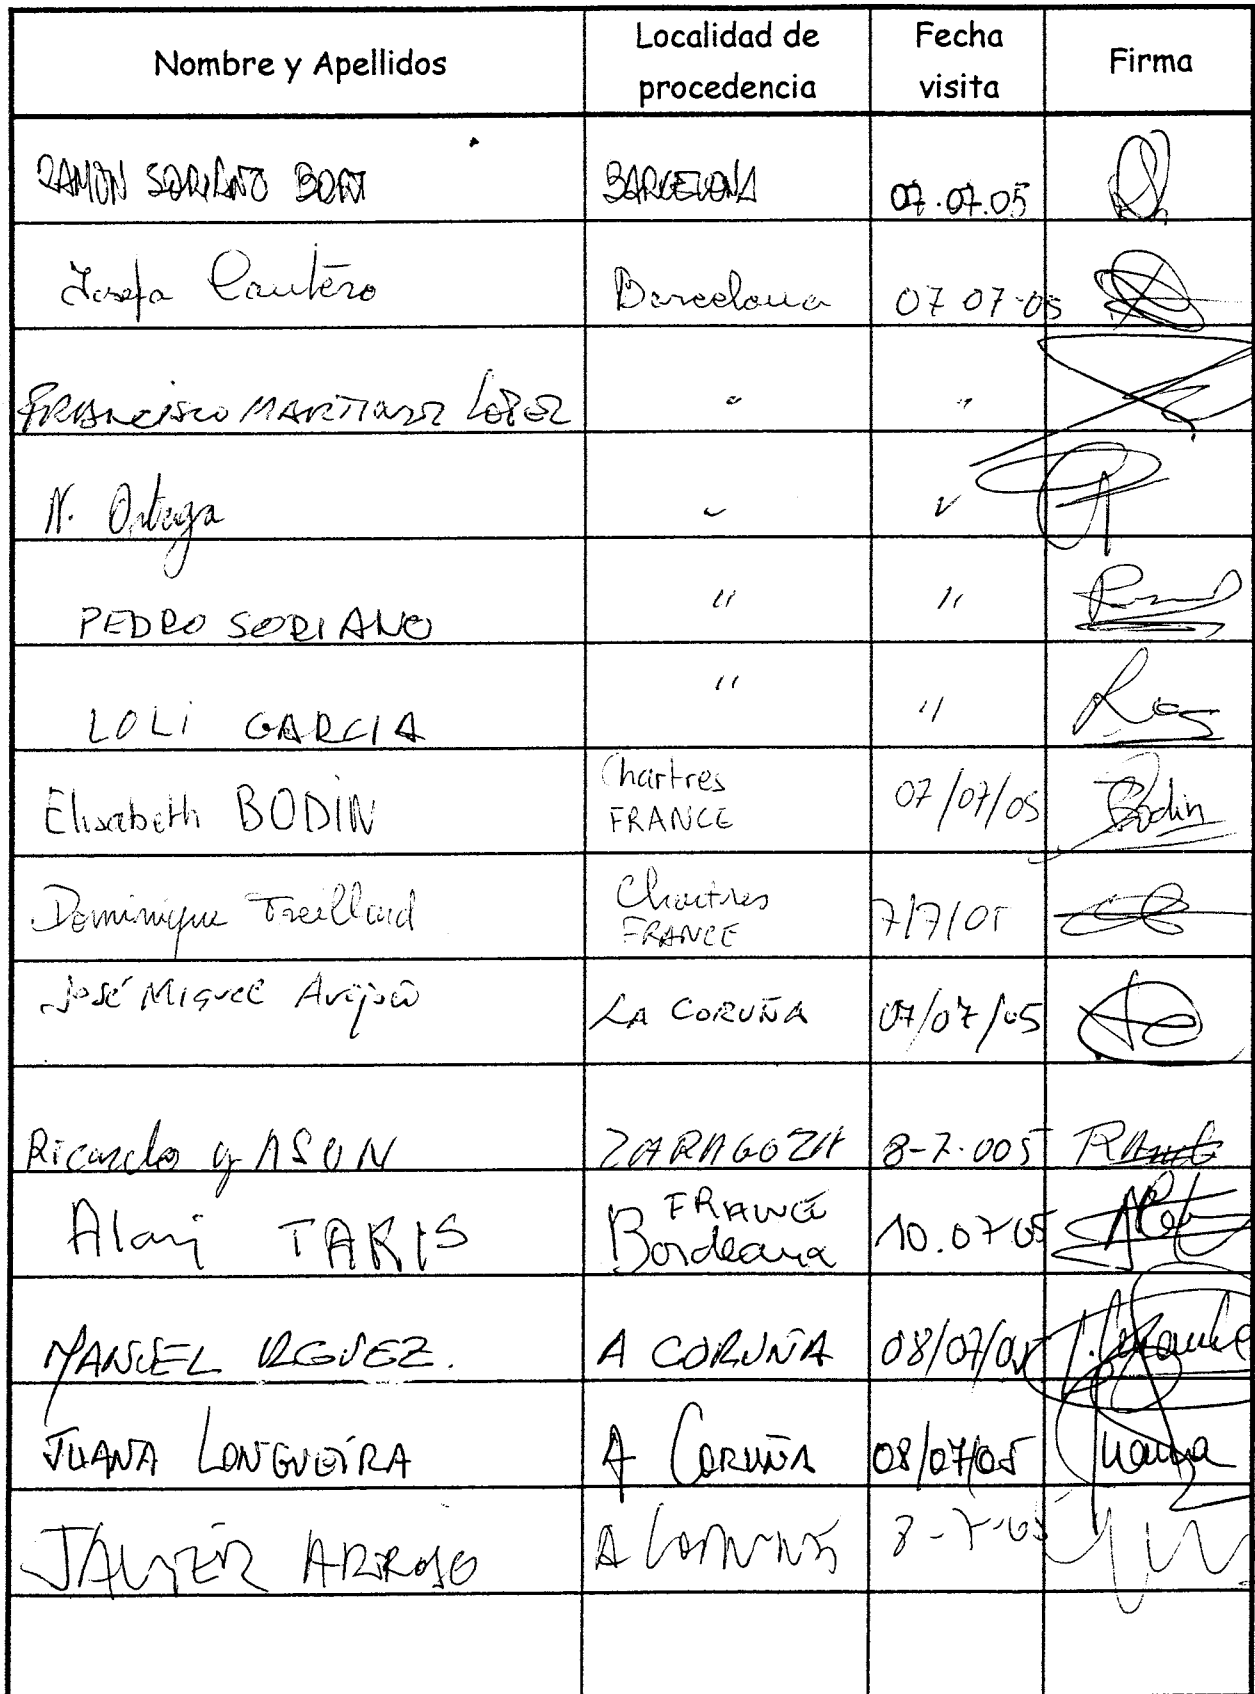 Nombre y Apellidos
Localidad de
procedencia
Fecha
visita
Firma
RAMÓN SORIANO
BARCELONA
07.07.05
Josefa Cantero
Barcelona
07 07 05
FRANCISCO MARTINEZ LOPEZ
"
"
N. Ortega
"
"
PEDRO SORIANO
"
"
LOLI GARCIA
"
"
Elisabeth BODIN
Chartres
FRANCE
07/07/05
Bodin
Dominique Treillard
Chartres
FRANCE
7/7/05
José MIGUEL
LA CORUÑA
07/07/05
Ricardo y ASUN
ZARAGOZA
8-7-005
Alain TARIS
FRANCE
Bordeaux
10.07 05
MANUEL
A CORUÑA
08/07/05
JUANA LONGUEIRA
A CORUÑA
08/07/05
Juana
JAVIER ARROJO
A CORUÑA
8-7-05